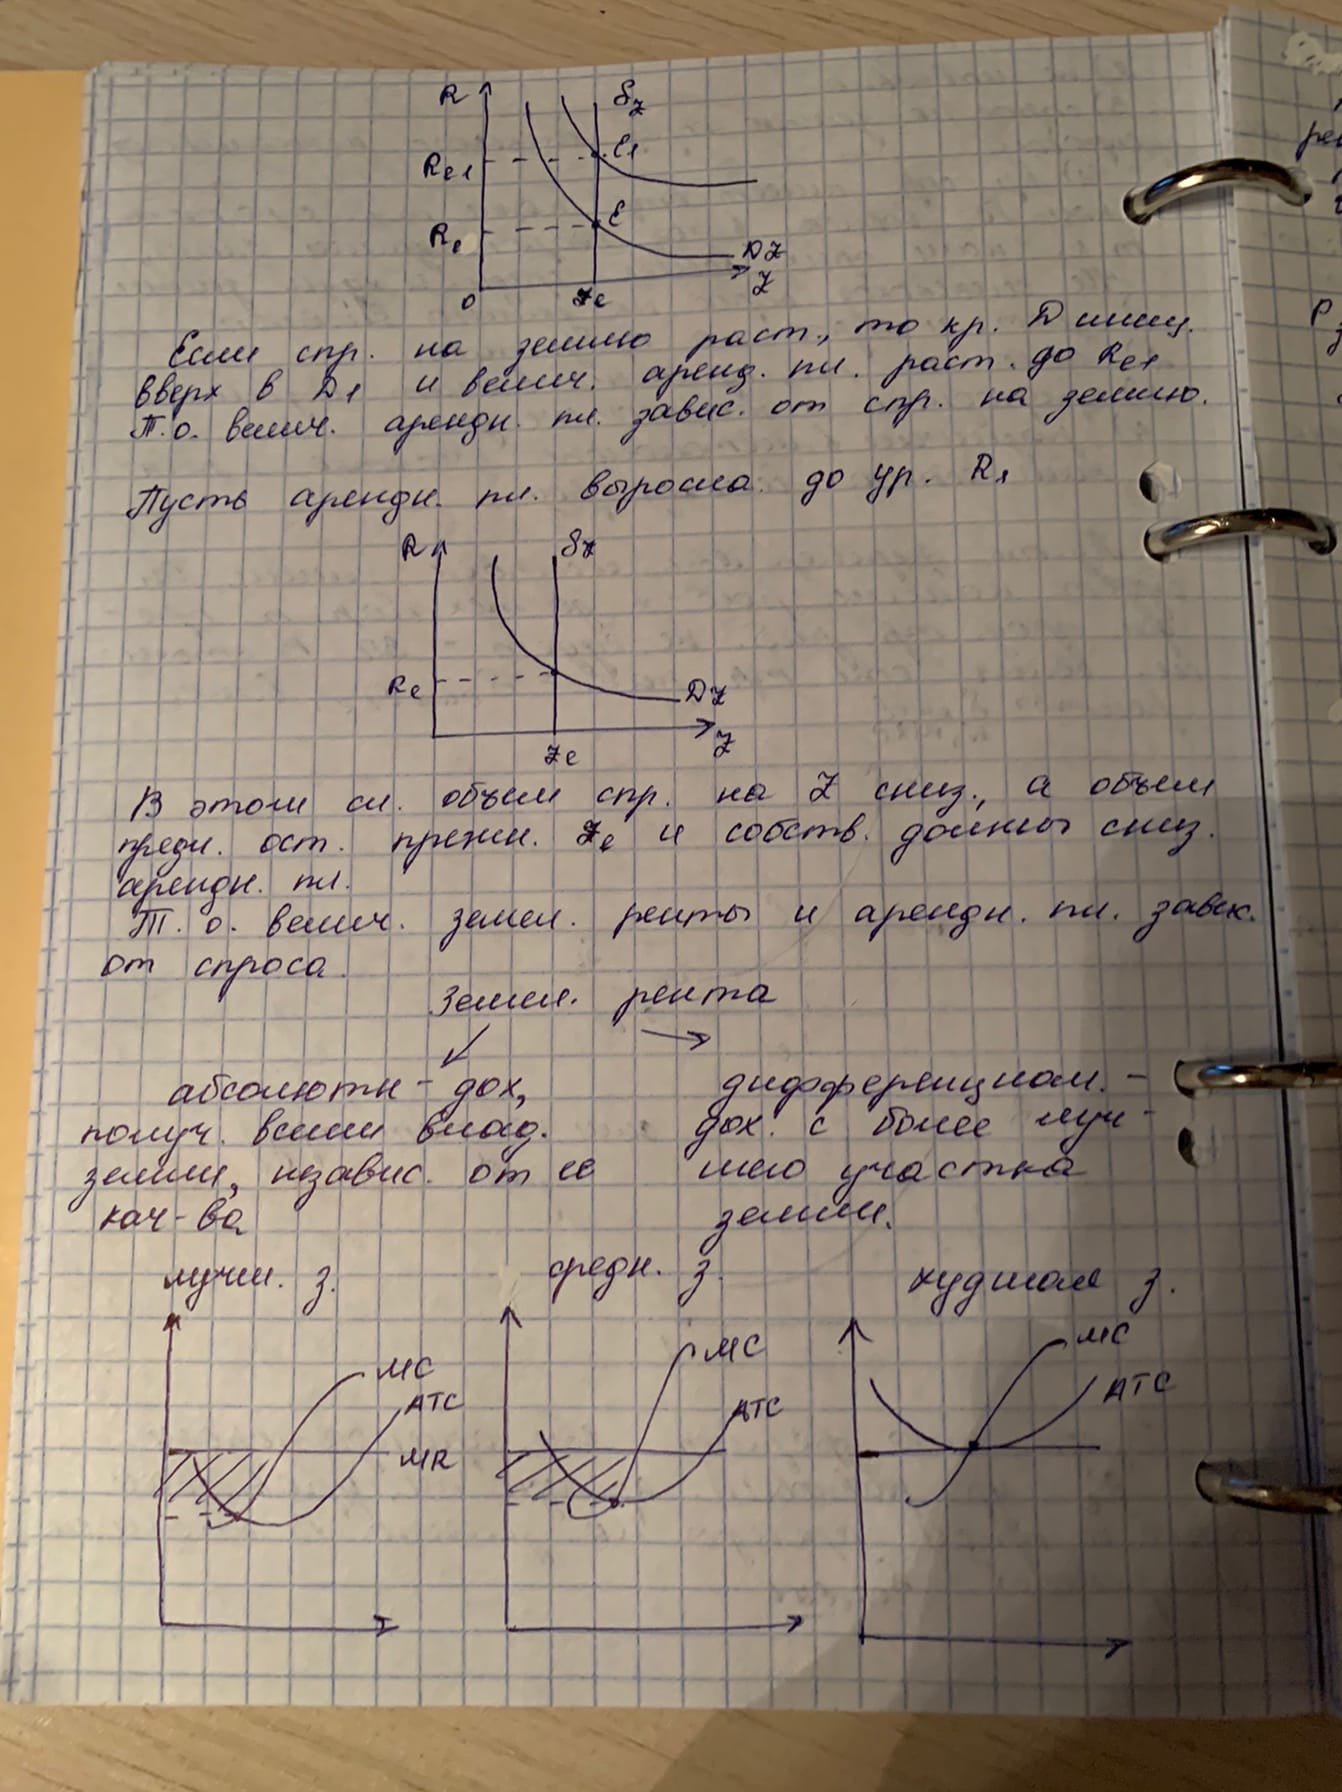 R
Sz
Re1
E1
Re
E
DZ
Z
0
Ze
Если спр. на землю раст., то кр. D смещ.
вверх в D1 и велич. аренд. пл. раст. до Re1
Т.о. велич. арендн. пл. завис. от спр. на землю.
Пусть арендн. пл. выросла до ур. R1
R
Sz
Re
DZ
Z
Ze
В этом сл. объем спр. на Z сниз., а объем
предл. ост. прежн. Ze и собств. должны сниз.
арендн. пл.
Т. о. велич. земел. ренты и арендн. пл. завис.
от спроса.
Земел. рента
абсолютн - дох,
получ. всеми влад.
земли, независ. от ее
кач-ва
дифференциал. -
дох. с более луч-
шего участка
земли.
лучш. з.
средн. з.
худшая з.
MC
ATC
MR
MC
ATC
MC
ATC